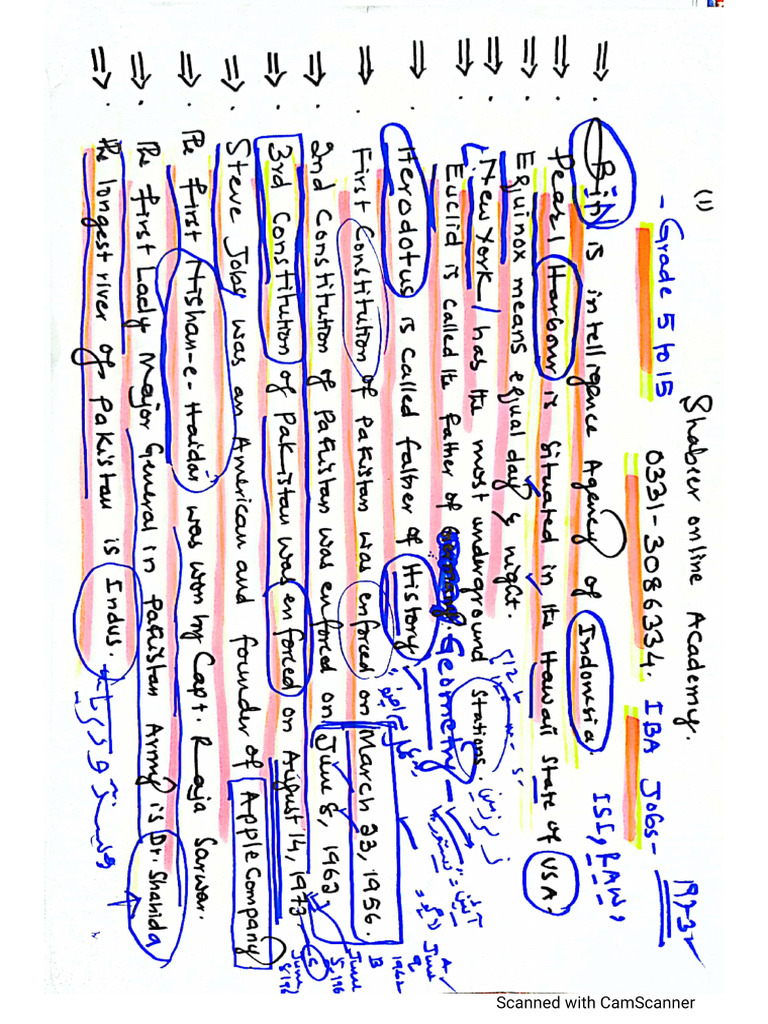 Shabeer online Academy.
- Grade 5 to 15 0331-3086334. IBA Jobs -
(1)
ISI, RAW,
Bin is intelligence Agency of Indonesia.
Pearl Harbour is situated in the Hawaii State of USA.
Equinox means equal day & night.
New York has the most underground stations.
Euclid is called the father of Geometry
Herodotus is called father of History
First Constitution of Pakistan was enforced on March 23, 1956.
2nd Constitution of Pakistan was enforced on June 8, 1962.
3rd Constitution of Pakistan was enforced on August 14, 1973.
Steve Jobs was an American and founder of Apple Company
The first Nishan-e-Haidar was won by Capt. Raja Sarwar.
The first Lady Major General in Pakistan Army is Dr. Shahida
The longest river of Pakistan is Indus.
Scanned with CamScanner